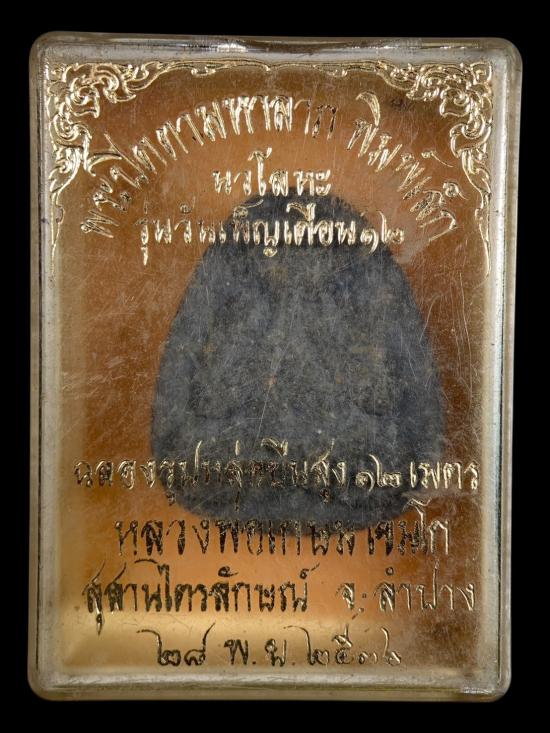 พระปิดตามหาลาภ พิมพ์เล็ก
นวโลหะ
รุ่นวันเพ็ญเดือน ๑๒
ฉลองรูปหล่อยืนสูง ๑๒ เมตร
หลวงพ่อเกษม เขมโก
สุสานไตรลักษณ์ จ. ลำปาง
๒๘ พ.ย. ๒๕๓๖